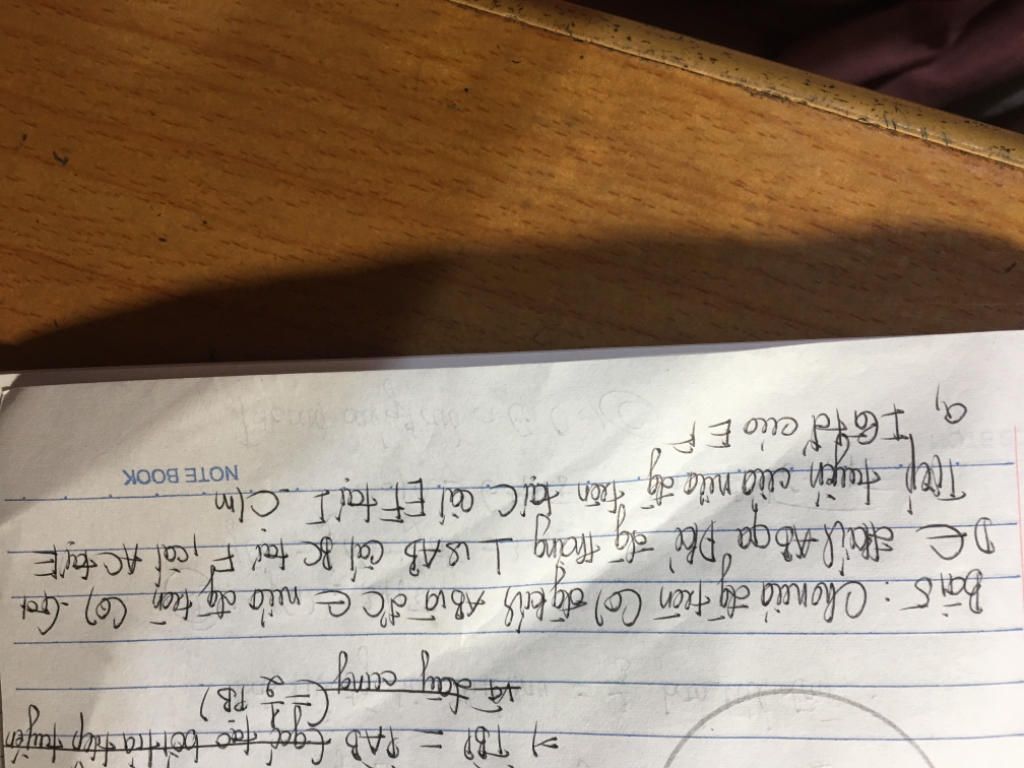 => TBP = PAB (góc tạo bởi tia tiếp tuyến
và dây cung (= 1/2 PB)
Bài 5: Cho nửa đg tròn (O) đg kính AB và C ∈ nửa đg tròn (O).
D ∈ đkính AB qa D kẻ đg thẳng ⊥ vs AB cắt BC tại F, cắt AC tại E
Tiếp tuyến của nửa đg tròn tại C cắt EF tại I. C/m
a, I là tđ của EF
NOTE BOOK